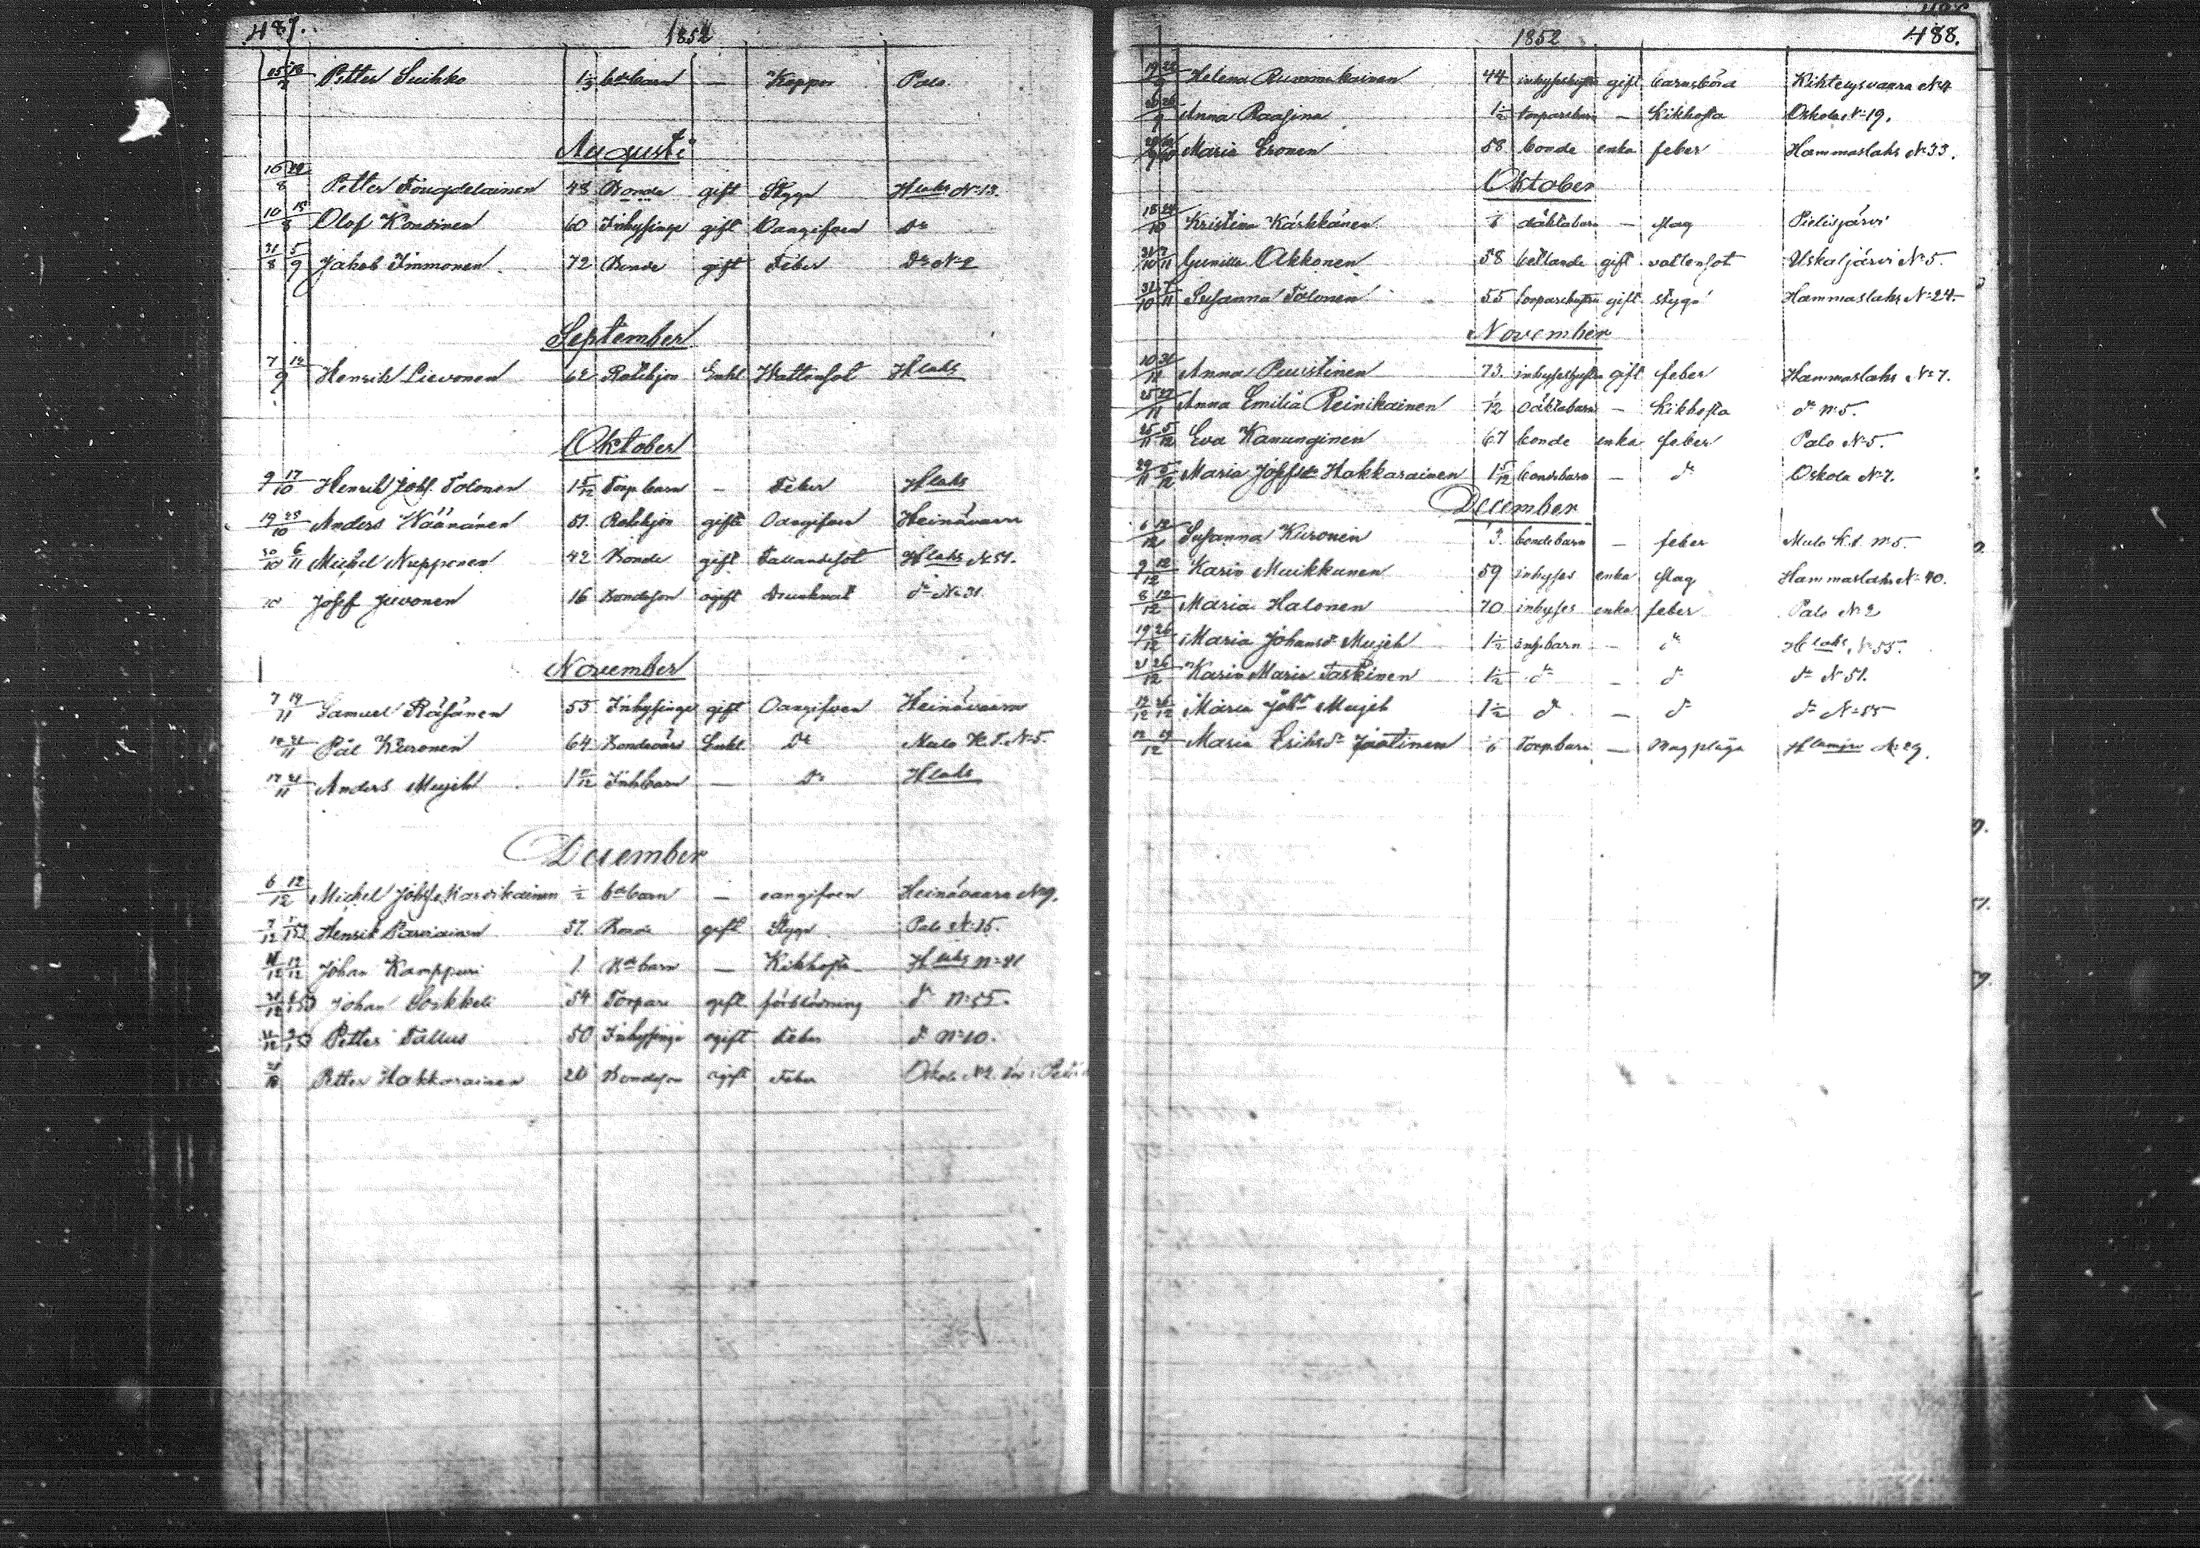 487.
1852
Petter Suihko 1/3 bdebarn — Koppor Palo
Augusti
Petter Tougdelainen 48 Bonde gift Stygn Hlaks No 13.
10 18/8 Olof Kondinen 60 Inhysinge gift Oangifven Do
31/8 5/9 Jakob Immonen 72 Bonde gift Feber Do No 2
September
7 12/9 Henrik Lievonen 62 Rotehjon Enkl Wattensot Hlaks
Oktober
9 17/10 Henrik Johs. Tolonen 1 5/12 Torpbarn — Feber Hlaks
19 23/10 Anders Wäänänen 51 Rotehjon gift Oangifven Heinävaara
30/10 6/11 Michel Nupponen 42 Bonde gift Fallandesot Hlaks No 51.
10 Josef Juvonen 16 Bondeson ogift Drunknat do No 31
November
7 14/11 Samuel Räsänen 55 Inhysinge gift Oangifven Heinävaara
Pål Kuronen 64 Enkl Do Mulo No 5.
Anders Mujeh Inhbarn — Do Hlaks
December
6 12/12 Michel Johs. Karvikainen 1/2 bdebarn — oangifven Heinävaara No 9.
Henrik Parviainen 57 Bonde gift Stygn Palo No 15.
Johan Kamppuri 1 barn — Kikhosta Hlaks No 41
Johan Sorkkeli 54 Torpare gift förblödning do No 55.
Petter Tallus 50 Inhysinge ogift Feber do No 10.
Petter Hakkarainen 20 Bondeson ogift Feber Oskola No 2.
1852
488.
Helena Rummukainen 44 inhyseshustru gift barnsbörd Kihtelysvaara No 4
Anna Raasina 1 1/2 torparebarn — Kikhosta Oskola No 19.
Maria Eronen 58 bonde enka feber Hammaslaks No 33.
Oktober
18 24/10 Kristina Kärkkänen oäktabarn — slag Pielisjärvi
31/10 7/11 Gunilla Akkonen 58 bettlande gift vattensot Uskaljärvi No 5.
31/10 7/11 Susanna Tolonen 55 torparehustru gift stygn Hammaslaks No 24.
November
Anna Puustinen 73. inhyseshustru gift feber Hammaslaks No 7.
25 27/11 Anna Emilia Reinikainen 1/12 oäktabarn — Kikhosta do No 5.
25/11 5/12 Eva Kanunginen 67 bonde enka feber Palo No 5.
29/11 5/12 Maria Josefsdr Hakkarainen 1 5/12 bondebarn — do Oskola No 7.
December
6 12/12 Susanna Kuronen 3 bondebarn — feber Mulo No 5.
9 12/12 Karin Muikkunen 59 inhyses enka slag Hammaslaks No 40.
8 12/12 Maria Halonen 70 inhyses enka feber Palo No 2
19 26/12 Maria Johansdr Mujeh 1 1/2 inhbarn — do Hlaks No 55.
21 26/12 Karin Maria Taskinen 1 1/2 do — do do No 51.
Maria Johsdr Mujeh 1 1/2 do — do do No 55
12 19/12 Maria Eriksdr Jaatinen 6 Torpbarn — Magplåga No 29.